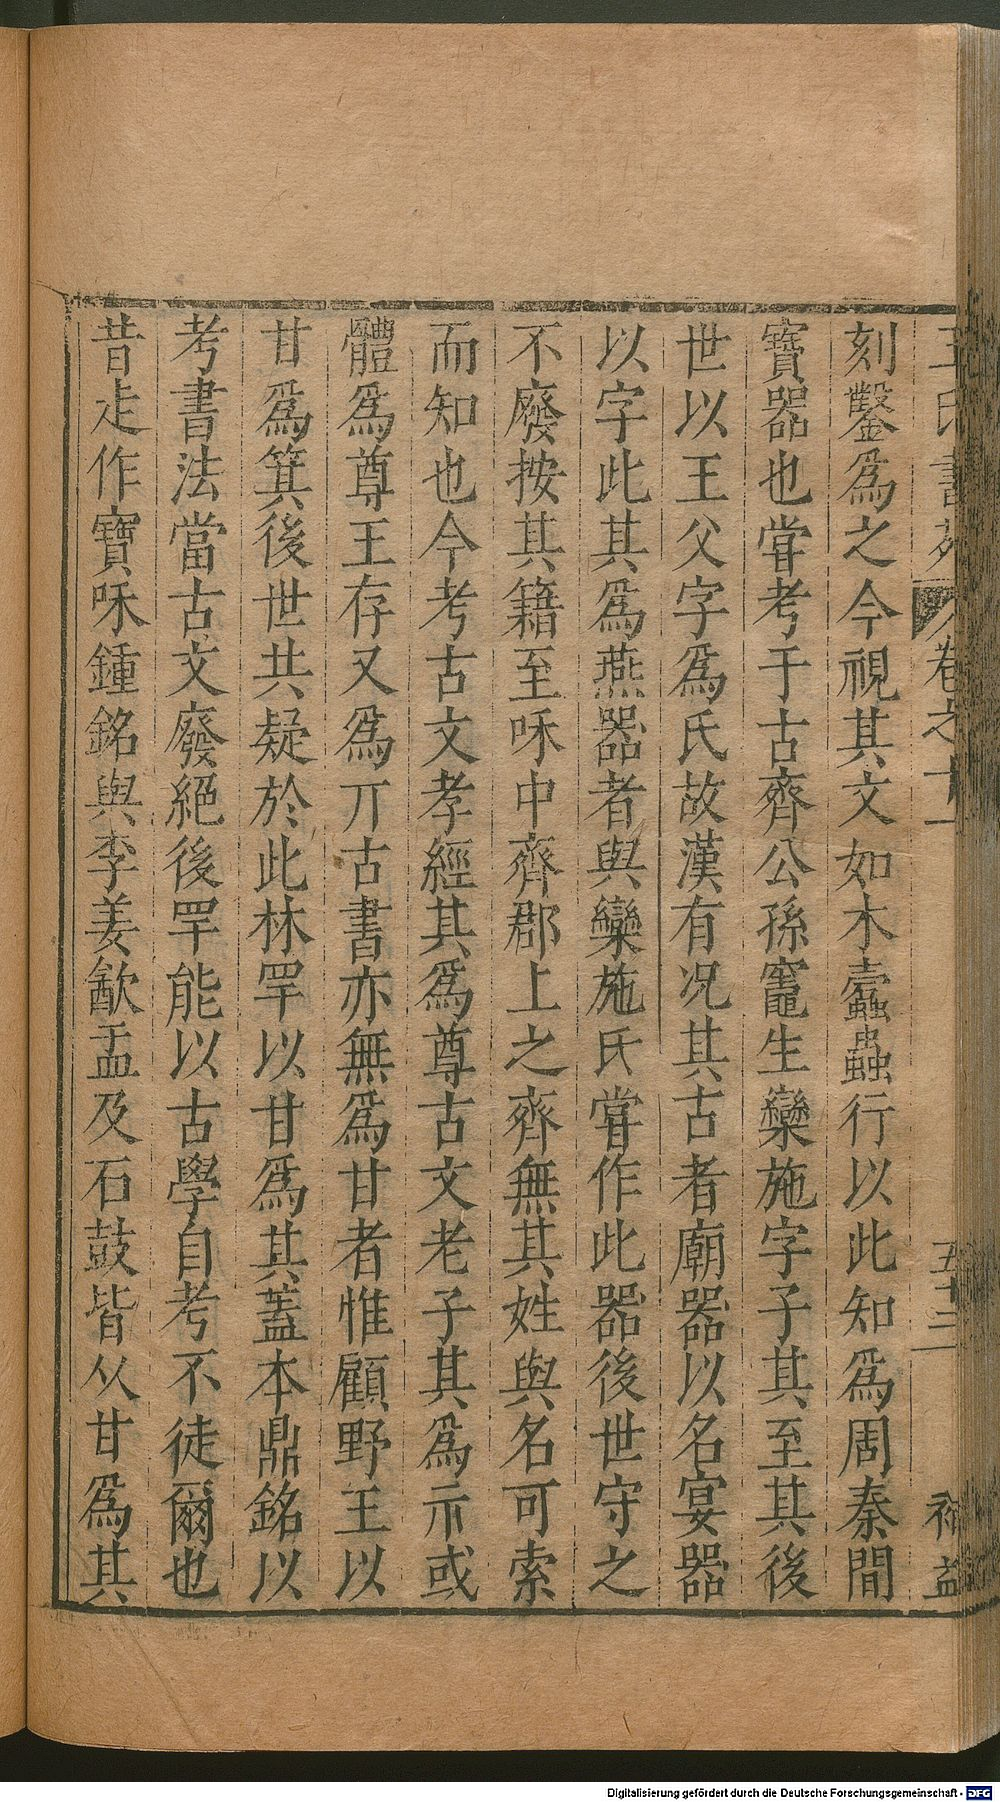 王氏書苑 卷之十一 五十二 補益
刻鑿爲之今視其文如木蠹蟲行以此知爲周秦間
寶器也甞考于古齊公孫竈生欒施字子其至其後
世以王父字爲氏故漢有况其古者廟器以名宴器
以字此其爲燕器者與欒施氏甞作此器後世守之
不廢按其籍至呠中齊郡上之齊無其姓與名可索
而知也今考古文孝經其爲尊古文老子其爲示或
體爲尊王存又爲丌古書亦無爲甘者惟顧野王以
甘爲箕後世共疑於此林罕以甘爲其蓋本鼎銘以
考書法當古文廢絕後罕能以古學自考不徒爾也
昔走作寶呠鍾銘與李姜歙盂及石鼓皆从甘爲其
Digitalisierung gefördert durch die Deutsche Forschungsgemeinschaft - DFG